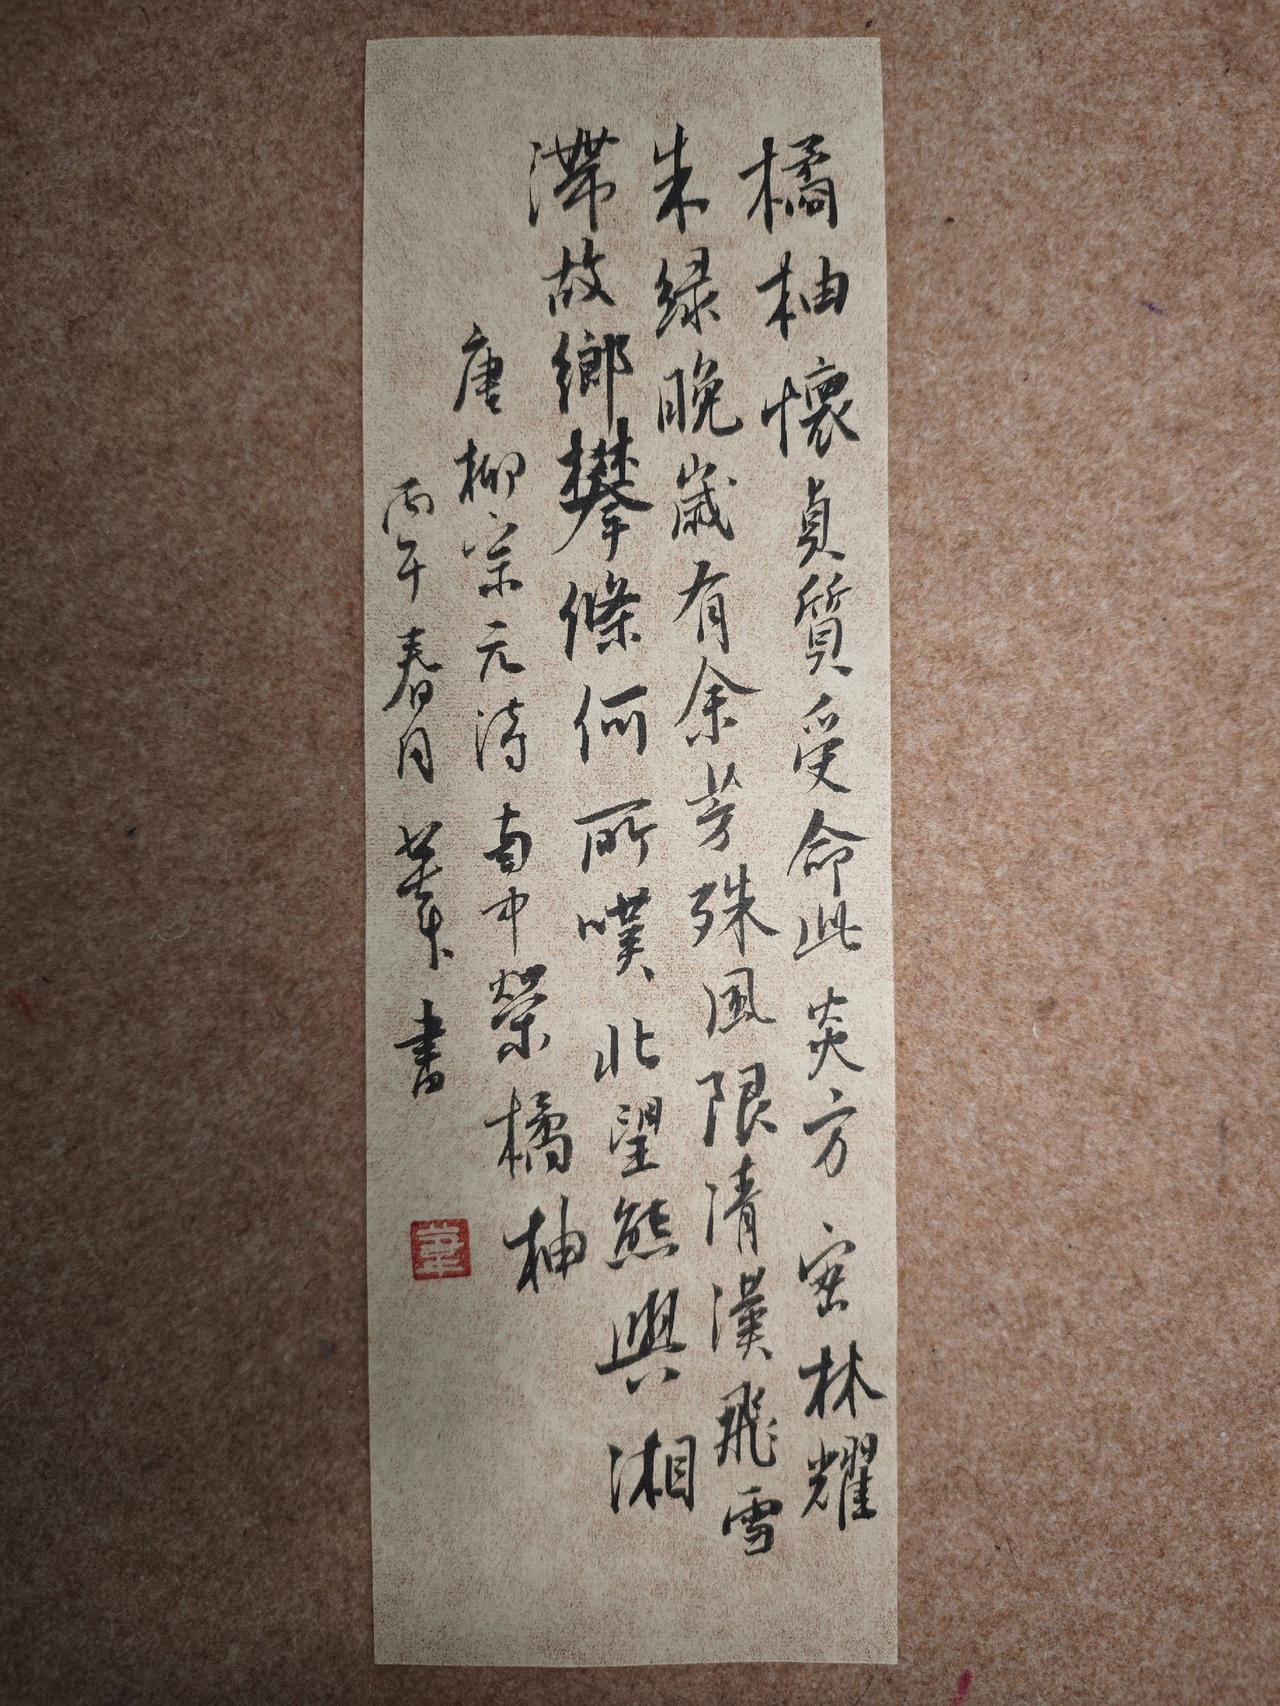 橘柚懷貞質受命此炎方密林耀
朱緑晚歲有余芳殊風限清漢飛雪
滯故鄉攀條何所嘆北望熊與湘
唐柳宗元詩南中榮橘柚
丙午春月華書